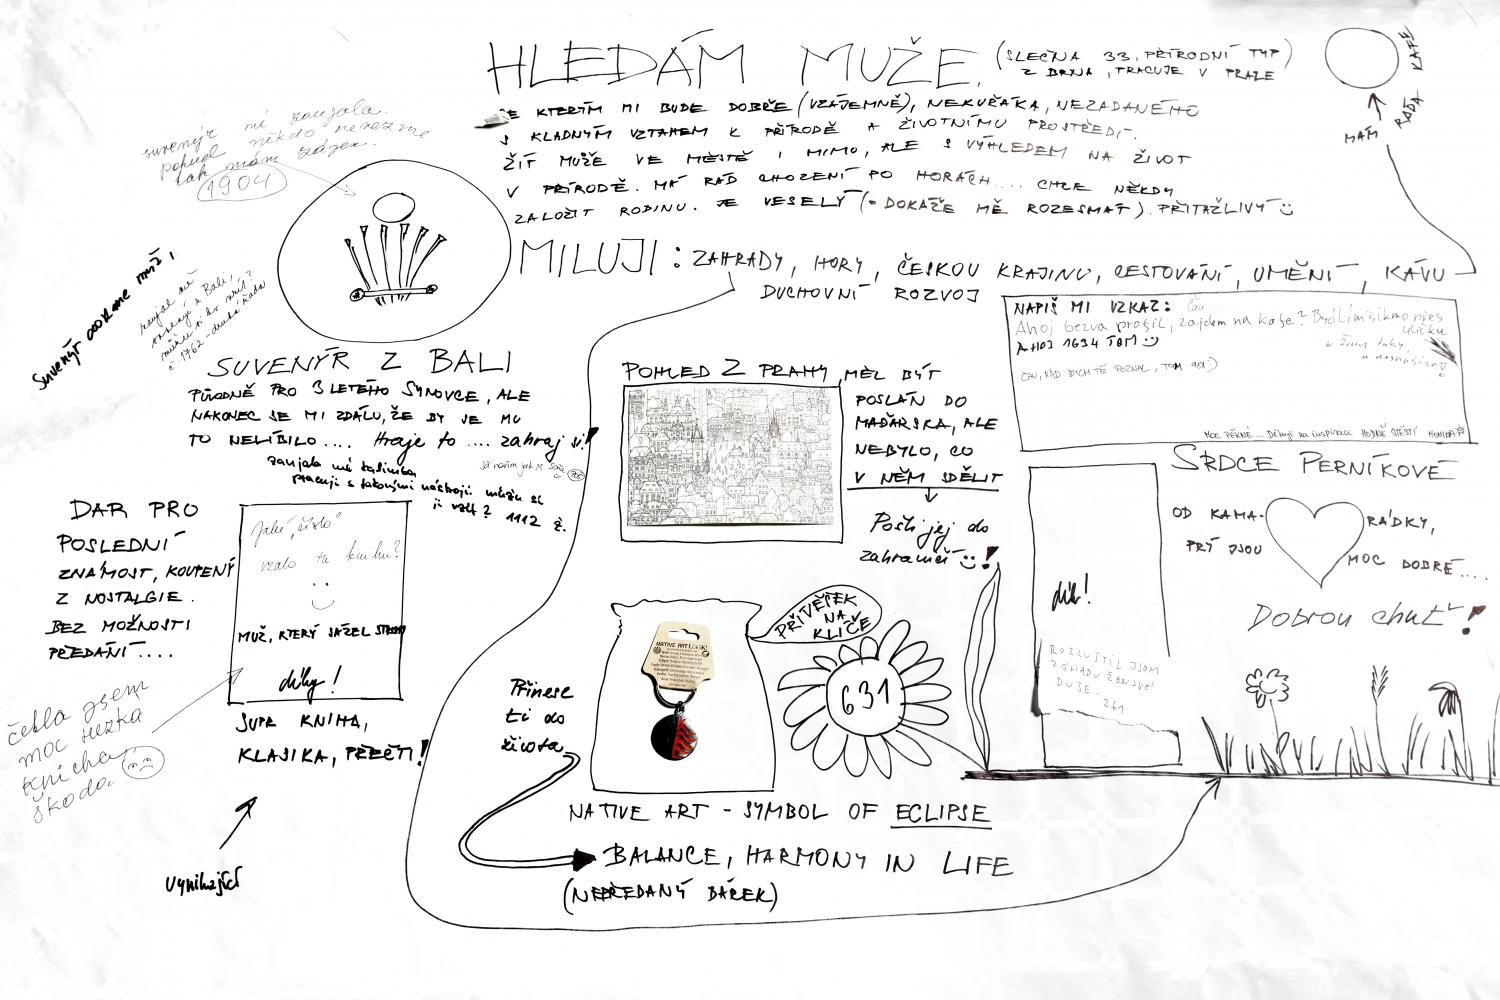 HLEDÁM MUŽE,
(SLEČNA 33, PŘÍRODNÍ TYP)
Z BRNA, PRACUJE V PRAZE
SE KTERÝM MI BUDE DOBŘE (VZÁJEMNĚ), NEKUŘÁKA, NEZADANÉHO
S KLADNÝM VZTAHEM K PŘÍRODĚ A ŽIVOTNÍMU PROSTŘEDÍ.
ŽÍT MŮŽE VE MĚSTĚ I MIMO, ALE S VÝHLEDEM NA ŽIVOT
V PŘÍRODĚ. MÁ RÁD CHOZENÍ PO HORÁCH.... CHCE NĚKDY
ZALOŽIT RODINU. JE VESELÝ (-DOKÁŽE MĚ ROZESMÁT). PŘITAŽLIVÝ
MÁM RÁDA KAFE
MILUJI: ZAHRADY, HORY, ČESKOU KRAJINU, CESTOVÁNÍ, UMĚNÍ, KÁVU
DUCHOVNÍ ROZVOJ
suvenýr mě zaujala.
pokud někdo nevezme
tak mám zájem.
1904
Suvenýr
zaujal mě
z Bali,
č. 1762
SUVENÝR Z BALI
PŮVODNĚ PRO 3 LETÉHO SYNOVCE, ALE
NAKONEC SE MI ZDÁLO, ŽE BY SE MU
TO NELÍBILO.... Hraje to .... zahraj si!
zaujala mě kalimba
pracuji s takovými nástroji můžu si
ji vzít? 1112 ž.
NAPIŠ MI VZKAZ: Čau
Ahoj bezva profil, zajdem na kafe? Bydlím šikmo přes
uličku
AHOJ 1634 TOM
ČAU, RÁD BYCH TĚ POZNAL, TOM
MOC PĚKNÉ... Děkuji za inspiraci HODNĚ ŠTĚSTÍ
POHLED Z PRAHY, MĚL BÝT
POSLÁN DO
MAĎARSKA, ALE
NEBYLO, CO
V NĚM SDĚLIT
Pošli jej do
zahraničí!
SRDCE PERNÍKOVÉ
OD KAMA-
RÁDKY,
PRÝ JSOU
MOC DOBRÉ....
Dobrou chuť!
DAR PRO
POSLEDNÍ
ZNÁMOST, KOUPENÝ
Z NOSTALGIE.
BEZ MOŽNOSTI
PŘEDÁNÍ....
Jaké "číslo"
vzalo tu knihu?
MUŽ, KTERÝ SÁZEL STROMY
díky!
SUPR KNIHA,
KLASIKA, PŘEČTI!
četla jsem
moc hezká
knížka,
škoda.
Vynikající
PŘÍVĚŠEK
NA
KLÍČE
NATIVE ART
631
Přinese
ti do
života
NATIVE ART - SYMBOL OF ECLIPSE
BALANCE, HARMONY IN LIFE
(NEPŘEDANÝ DÁREK)
dík!
ROZLUŠTIL JSEM
ZÁHADU ŽENSKÉ
DUŠE.
261